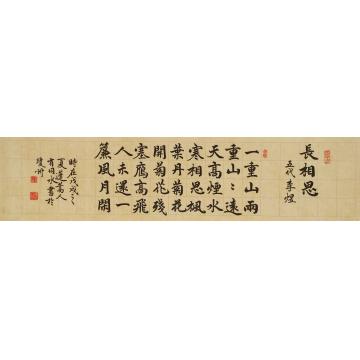 長相思
五代 李煜
一重山兩
重山〻遠
天高煙水
寒相思楓
葉丹菊花
開菊花殘
塞鴈高飛
人未還一
簾風月閑
時在戊戌之
夏蓬萊人
水書於
瓊州